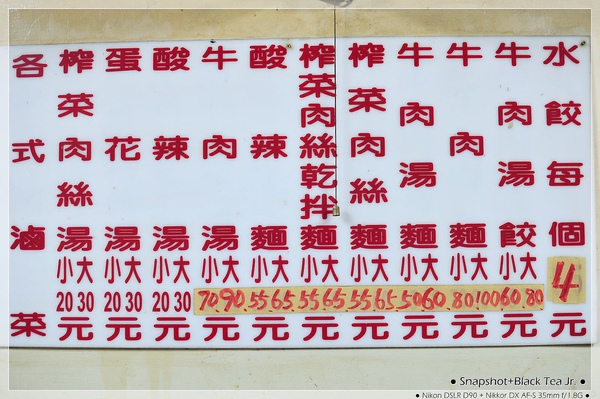 水餃每個4元
牛肉湯餃小60大80元
牛肉麵小80大100元
牛肉湯麵小50大60元
榨菜肉絲麵小55大65元
榨菜肉絲乾拌麵小55大65元
酸辣麵小55大65元
牛肉湯小70大90元
酸辣湯小20大30元
蛋花湯小20大30元
榨菜肉絲湯小20大30元
各式滷菜
● Snapshot+Black Tea Jr. ●
● Nikon DSLR D90 + Nikkor DX AF-S 35mm f/1.8G ●